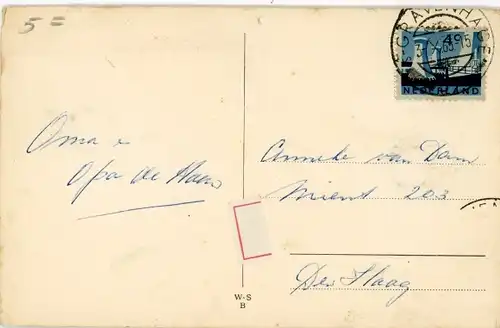 5=
'S-GRAVENHAGE
NEDERLAND
Oma &
Opa de Haas
Anneke van Dam
Mient 203
Den Haag
W-S
B